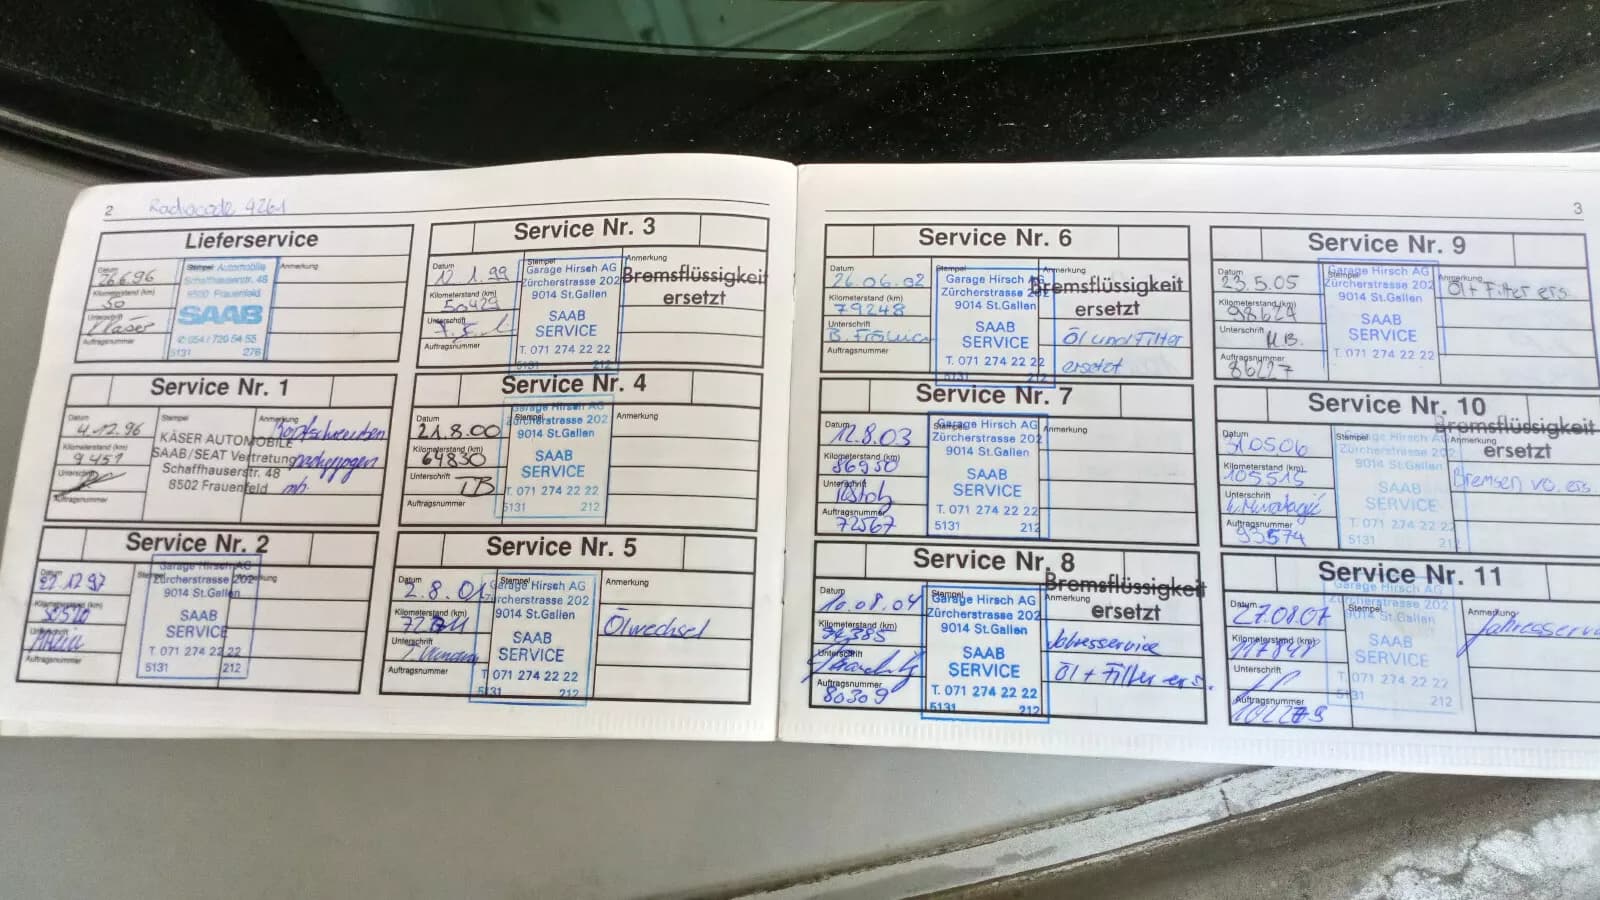 2
Radiocode 4261
Lieferservice
Datum
26.6.96
Kilometerstand (km)
50
Unterschrift
Käser
Auftragsnummer
Stempel
Automobile
Schaffhauserstr. 48
8500 Frauenfeld
SAAB
✆ 054 / 720 54 55
5131 276
Anmerkung
Service Nr. 1
Datum
4.12.96
Kilometerstand (km)
9457
Unterschrift
Auftragsnummer
Stempel
KÄSER AUTOMOBILE
SAAB/SEAT Vertretung
Schaffhauserstr. 48
8502 Frauenfeld
Anmerkung
Kopfschrauben
nachgezogen
Service Nr. 2
Datum
22.12.97
Kilometerstand (km)
Unterschrift
Auftragsnummer
Garage Hirsch AG
Zürcherstrasse 202
9014 St.Gallen
SAAB
SERVICE
T. 071 274 22 22
5131 212
Service Nr. 3
Datum
12.1.99
Kilometerstand (km)
50429
Unterschrift
Auftragsnummer
Stempel
Garage Hirsch AG
Zürcherstrasse 202
9014 St.Gallen
SAAB
SERVICE
T. 071 274 22 22
5131 212
Anmerkung
Bremsflüssigkeit
ersetzt
Service Nr. 4
Datum
21.8.00
Kilometerstand (km)
64830
Unterschrift
TB
Auftragsnummer
Stempel
Garage Hirsch AG
Zürcherstrasse 202
9014 St.Gallen
SAAB
SERVICE
T. 071 274 22 22
5131 212
Anmerkung
Service Nr. 5
Datum
2.8.01
Kilometerstand (km)
Unterschrift
Auftragsnummer
Stempel
Garage Hirsch AG
Zürcherstrasse 202
9014 St.Gallen
SAAB
SERVICE
T. 071 274 22 22
5131 212
Anmerkung
Ölwechsel
3
Service Nr. 6
Datum
26.06.02
Kilometerstand (km)
79248
Unterschrift
Auftragsnummer
Stempel
Garage Hirsch AG
Zürcherstrasse 202
9014 St.Gallen
SAAB
SERVICE
T. 071 274 22 22
5131 212
Anmerkung
Bremsflüssigkeit
ersetzt
Öl und Filter
ersetzt
Service Nr. 7
Datum
12.8.03
Kilometerstand (km)
86950
Unterschrift
Auftragsnummer
72567
Stempel
Garage Hirsch AG
Zürcherstrasse 202
9014 St.Gallen
SAAB
SERVICE
T. 071 274 22 22
5131 212
Anmerkung
Service Nr. 8
Datum
10.08.04
Kilometerstand (km)
Unterschrift
Auftragsnummer
80309
Stempel
Garage Hirsch AG
Zürcherstrasse 202
9014 St.Gallen
SAAB
SERVICE
T. 071 274 22 22
5131 212
Anmerkung
Bremsflüssigkeit
ersetzt
Jahresservice
Öl + Filter ers.
Service Nr. 9
Datum
23.5.05
Kilometerstand (km)
98624
Unterschrift
Auftragsnummer
86227
Stempel
Garage Hirsch AG
Zürcherstrasse 202
9014 St.Gallen
SAAB
SERVICE
T. 071 274 22 22
Anmerkung
Öl + Filter ers.
Service Nr. 10
Datum
310506
Kilometerstand (km)
105515
Unterschrift
Auftragsnummer
93574
Stempel
Garage Hirsch AG
Zürcherstrasse 202
9014 St.Gallen
SAAB
SERVICE
T. 071 274 22 22
5131 212
Anmerkung
Bremsflüssigkeit
ersetzt
Bremsen vo. ers.
Service Nr. 11
Datum
27.08.07
Kilometerstand (km)
117847
Unterschrift
Auftragsnummer
Stempel
Garage Hirsch AG
Zürcherstrasse 202
9014 St.Gallen
SAAB
SERVICE
T. 071 274 22 22
5131 212
Anmerkung